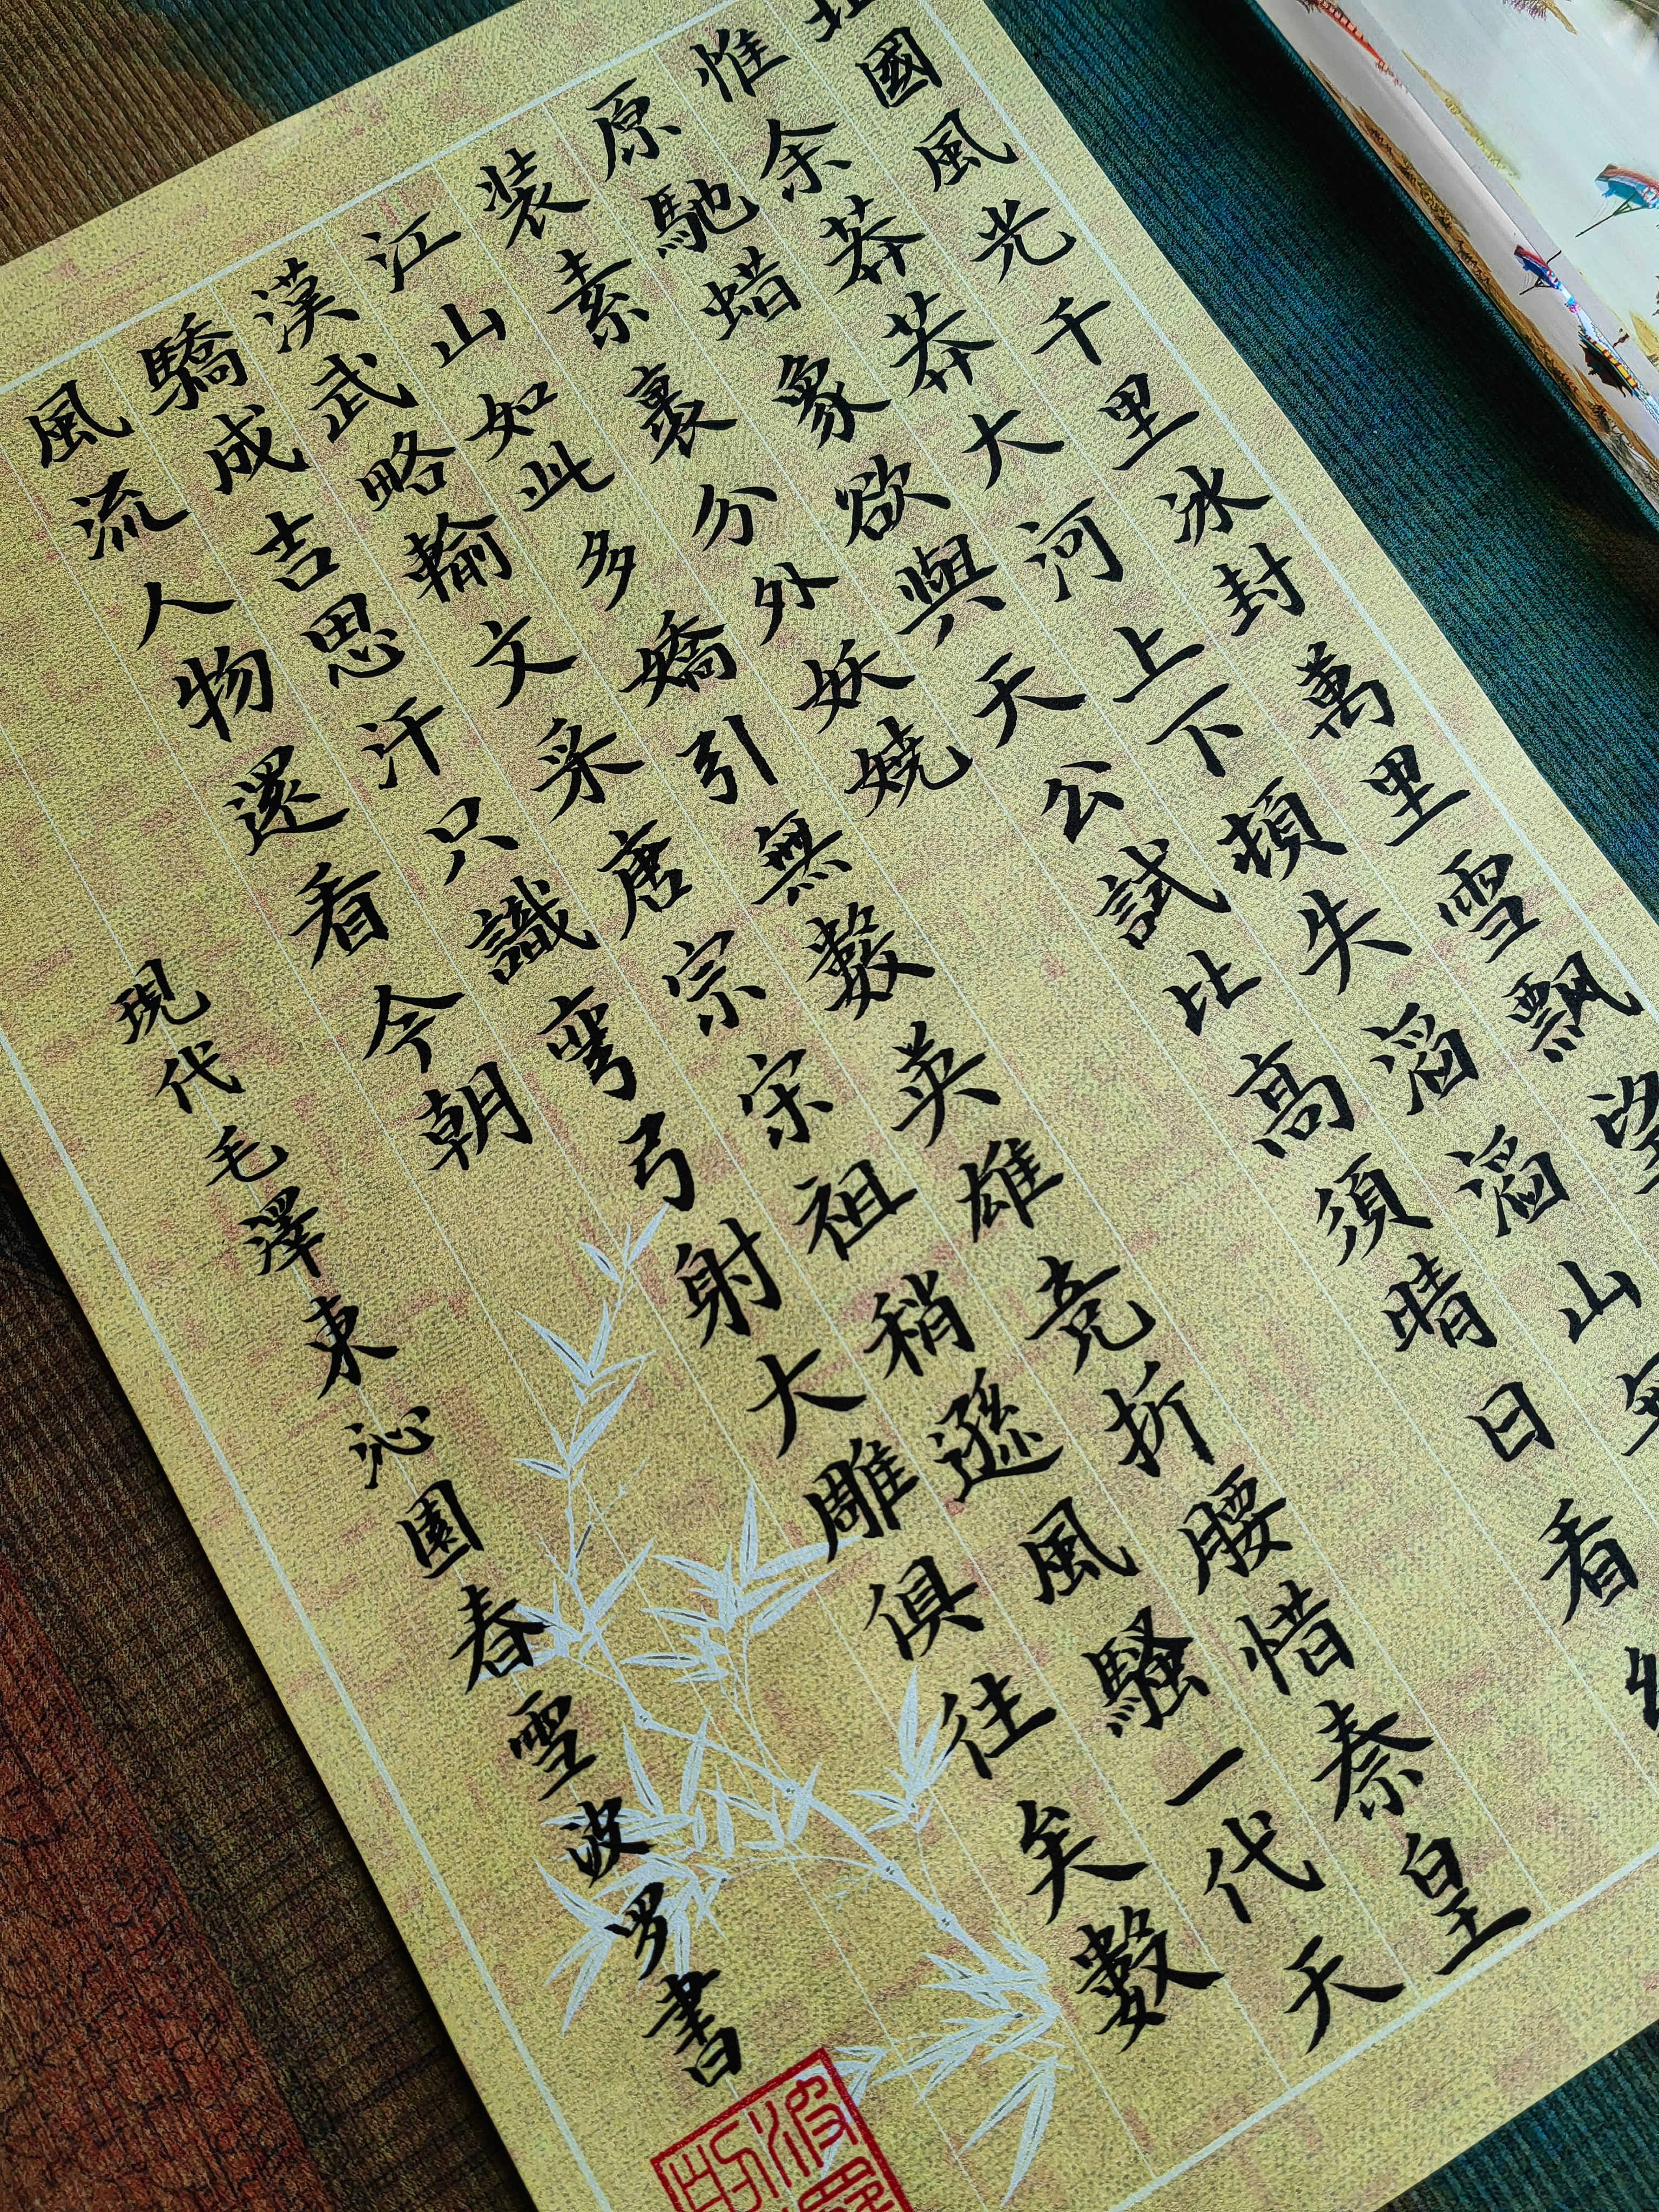 國風光千里冰封萬里雪飄望
惟余莽莽大河上下頓失滔滔山
原馳蜡象欲與天公試比高須晴日看
装素裹分外妖嬈
江山如此多嬌引無數英雄竞折腰惜秦皇
漢武略輸文采唐宗宋祖稍遜風騷一代天
驕成吉思汗只識彎弓射大雕俱往矣數
風流人物還看今朝
現代毛澤東沁園春雪波罗書